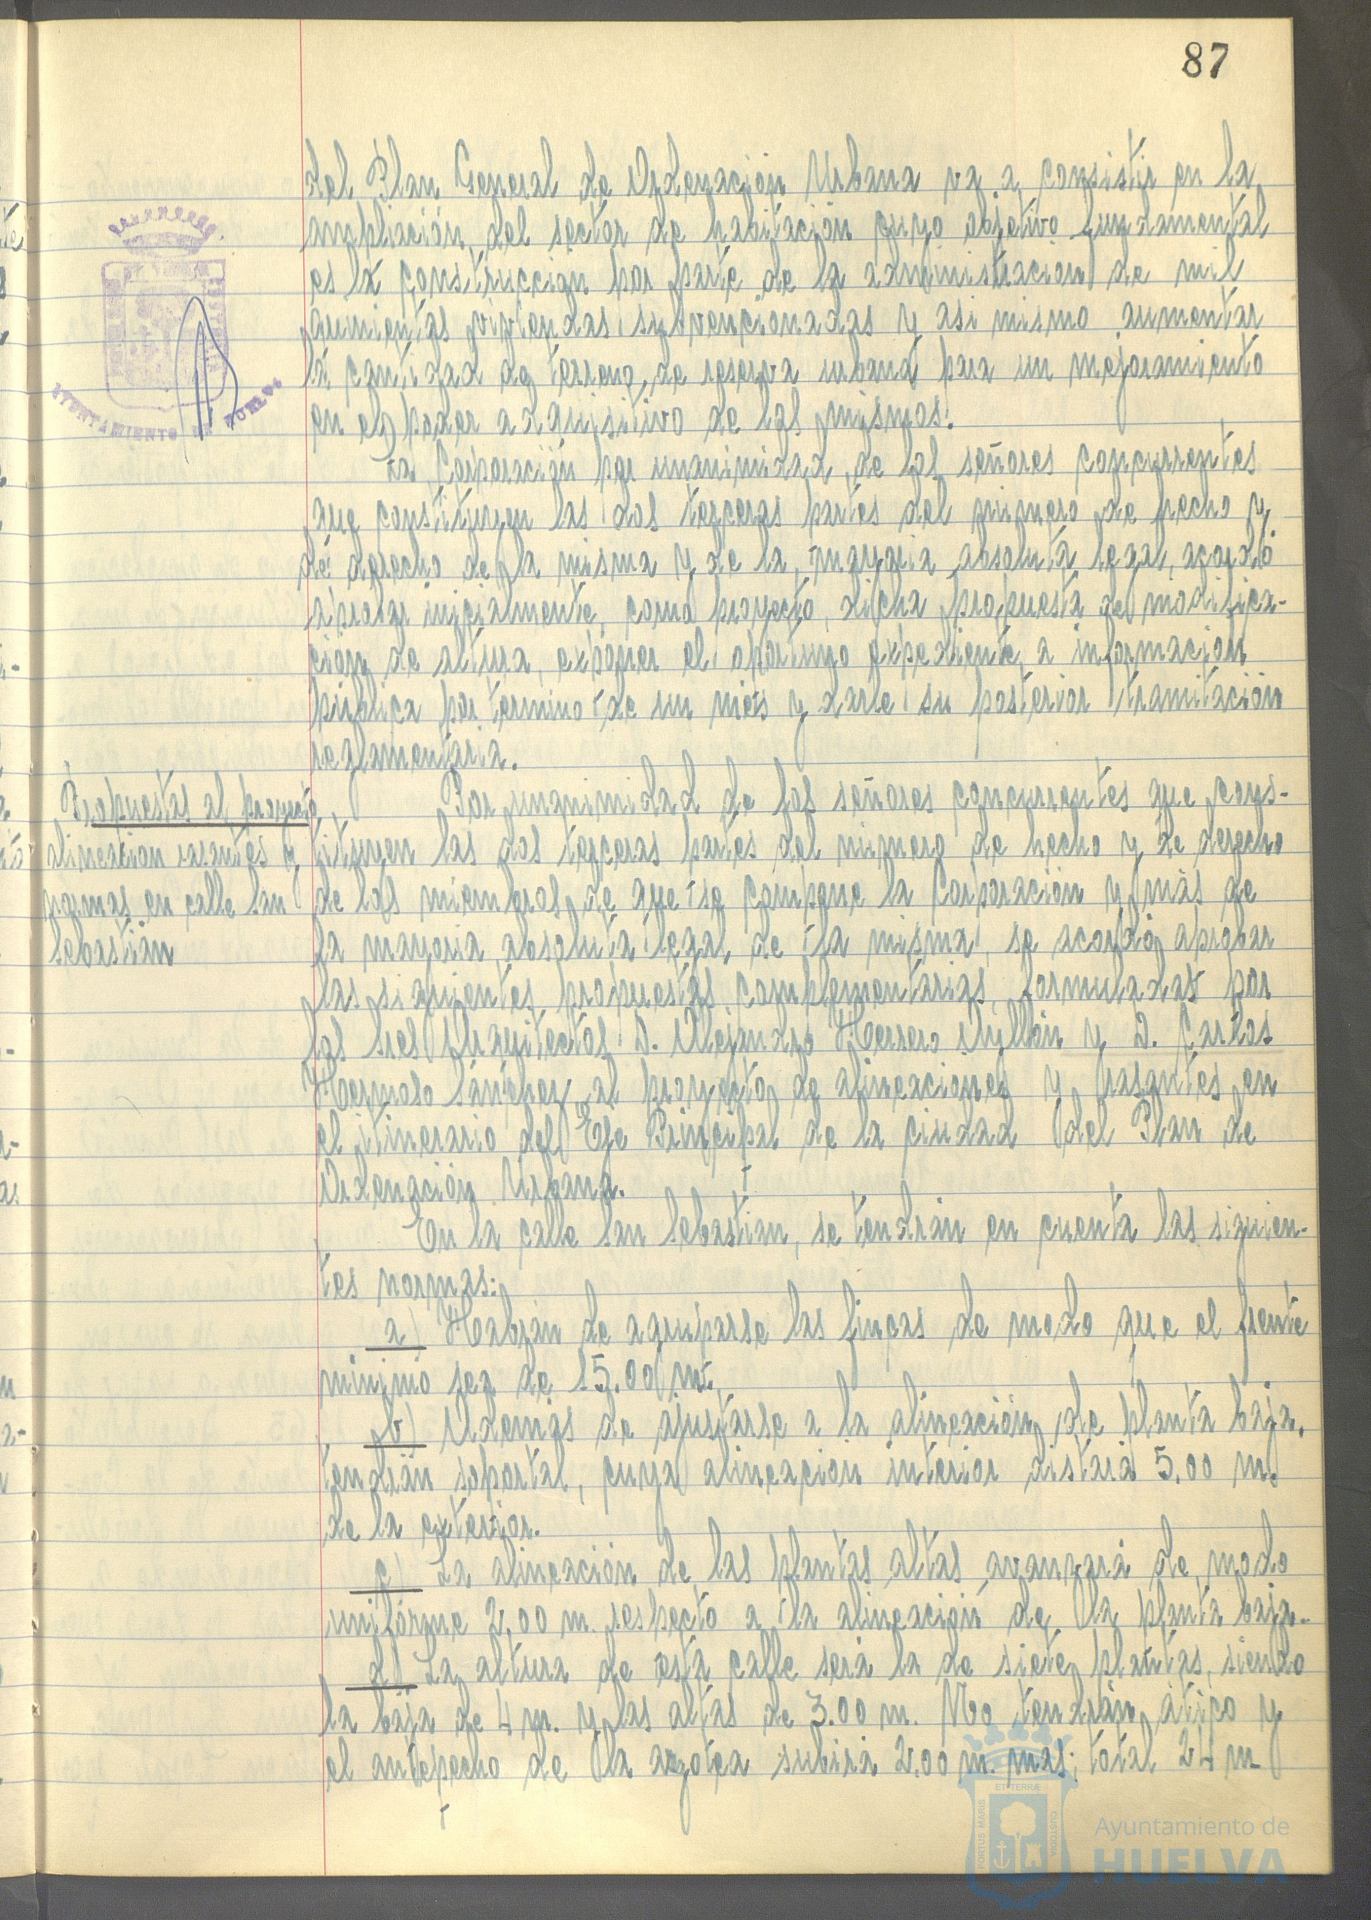 87
del Plan General de Ordenación Urbana va a consistir en la
ampliación del sector de habitación cuyo objetivo fundamental
es la construcción por parte de la administración de mil
quinientas viviendas subvencionadas y asi mismo aumentar
la cantidad de terreno de reserva urbana para un mejoramiento
en el poder adquisitivo de los mismos.
La Corporación por unanimidad de los señores concurrentes
que constituyen las dos terceras partes del número de hecho y
de derecho de la misma y de la mayoria absoluta legal, acordó
aprobar inicialmente, como proyecto, dicha propuesta de modifica-
ción de altura, exponer el oportuno expediente a información
pública por termino de un mes y darle su posterior tramitación
reglamentaria.
Propuestas al proyecto
alineación rasantes y
normas en calle San
Sebastián
Por unanimidad de los señores concurrentes que cons-
tituyen las dos terceras partes del número de hecho y de derecho
de los miembros de que se compone la Corporación y más de
la mayoria absoluta legal de la misma, se acordó aprobar
las siguientes propuestas complementarias, formuladas por
los Sres Arquitectos D. Alejandro Herrero Ayllón y D. Carlos
Hermoso Sánchez al proyecto de alineaciones y rasantes en
el itinerario del Eje Principal de la ciudad del Plan de
Ordenación Urbana.
En la calle San Sebastian, se tendrán en cuenta las siguien-
tes normas:
a) Habrán de agruparse las fincas de modo que el frente
minimo sea de 15.00 mt.
b) Además de ajustarse a la alineación de planta baja,
tendrán soportal, cuya alineación interior distará 5.00 m.
de la exterior.
c) La alineación de las plantas altas avanzará de modo
uniforme 2.00 m. respecto a la alineación de la planta baja.
d) La altura de esta calle será la de siete plantas, siendo
la baja de 4 m. y las altas de 3.00 m. No tendrán ático y
el antepecho de la azotea subirá 2.00 m. mas; total 24 m.
AYUNTAMIENTO DE HUELVA
PORTUS MARIS
ET TERRÆ
CUSTODIA
Ayuntamiento de
HUELVA